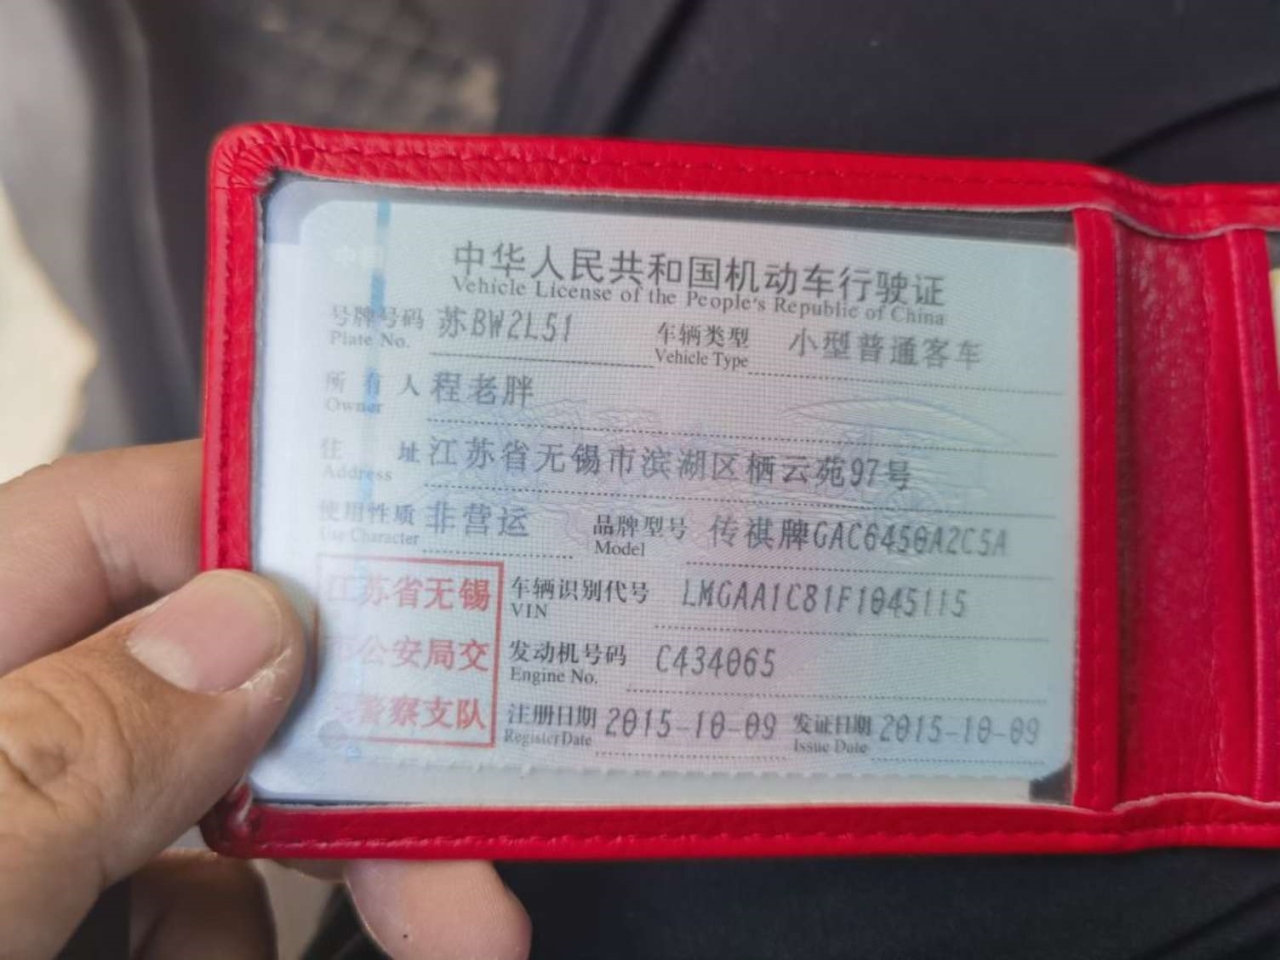 中华人民共和国机动车行驶证
Vehicle License of the People's Republic of China
号牌号码 苏BW2L51 车辆类型 小型普通客车
Plate No. Vehicle Type
所有人 程老胖
Owner
住址 江苏省无锡市滨湖区栖云苑97号
Address
使用性质 非营运 品牌型号 传祺牌GAC6450A2C5A
Use Character Model
江苏省无锡 车辆识别代号 LMGAA1C81F1045115
VIN
公安局交 发动机号码 C434065
Engine No.
警察支队 注册日期 2015-10-09 发证日期 2015-10-09
Register Date Issue Date